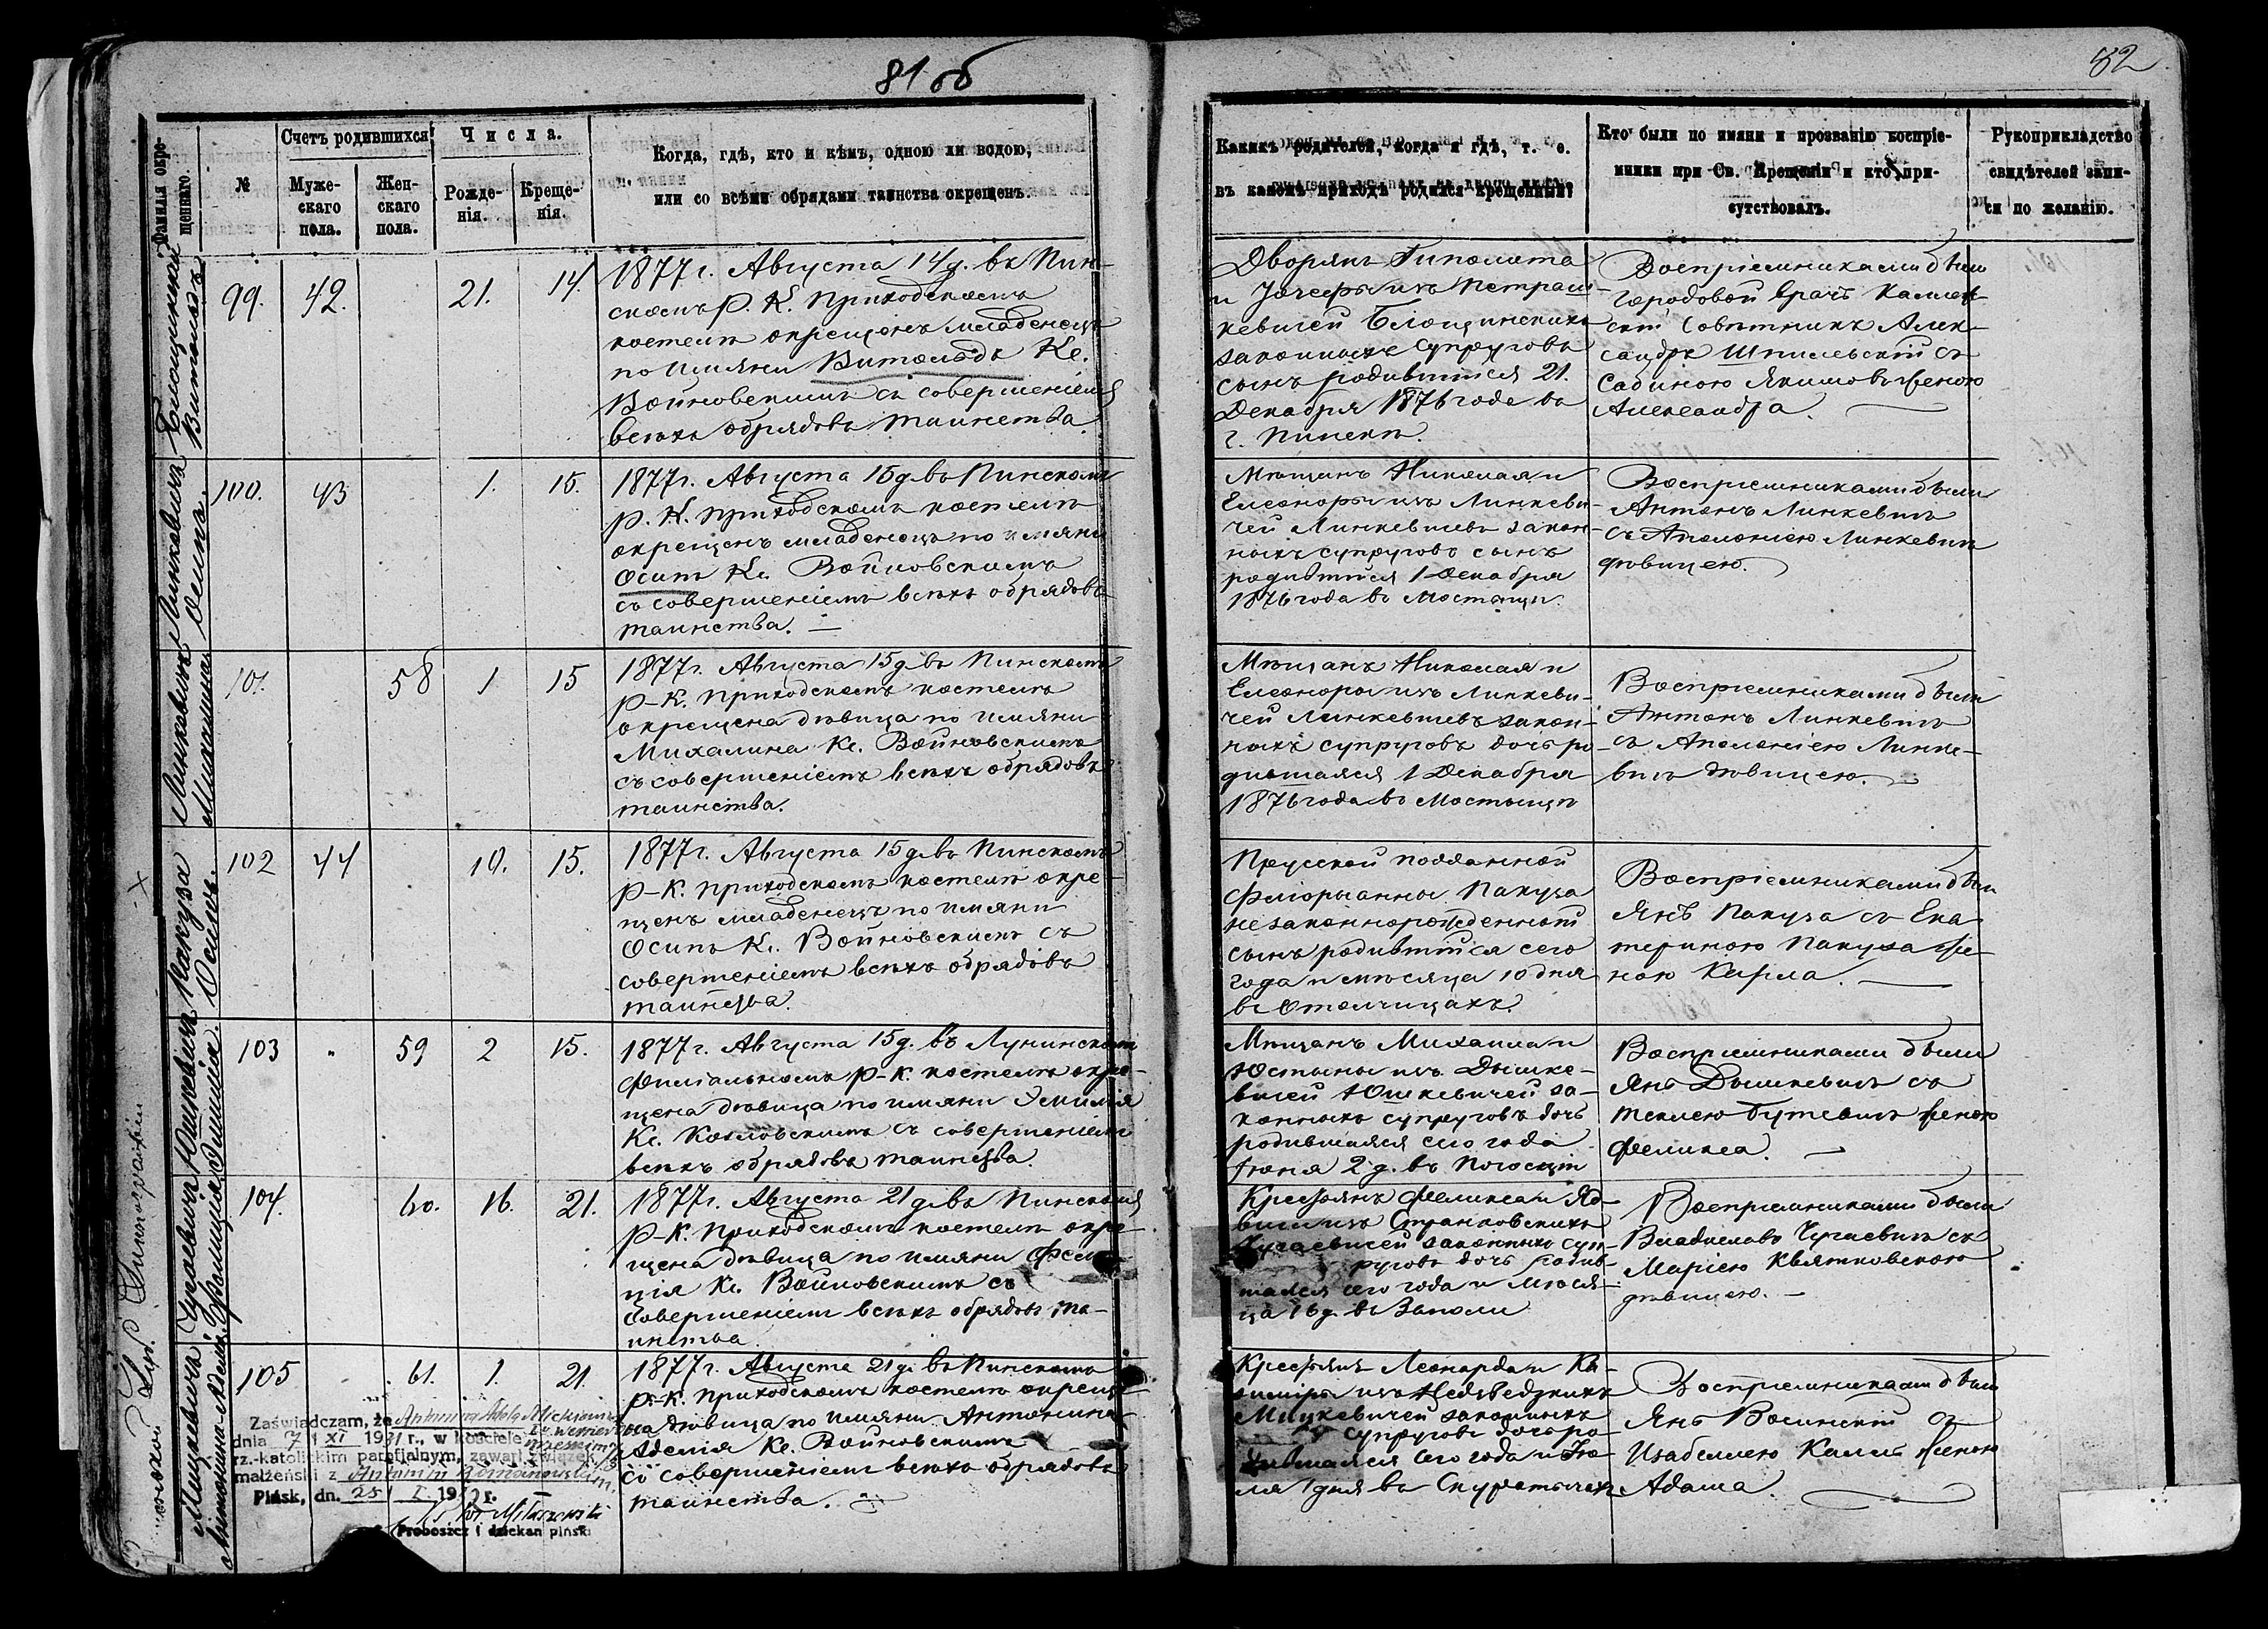 81 об
82
Фамилія окре-
щеннаго.
№
Счетъ родившихся
Муже-
скаго
пола.
Жен-
скаго
пола.
Числа.
Рожде-
нія.
Креще-
нія.
Когда, гдѣ, кто и кѣмъ, одною ли водою,
или со всѣми обрядами таинства окрещенъ.
Какихъ родителей, когда и гдѣ, т. е.
въ какомъ приходѣ родился крещенный?
Кто были по имяни и прозванію воспріе-
мники при Св. Крещеніи и кто при-
сутствовалъ.
Рукоприкладство
свидѣтелей запи-
си по желанію.
Витольдъ
99. 42. 21. 14.
1877 г. Августа 14 д. въ Пин-
скомъ Р. К. Приходскомъ
костелѣ окрещенъ младенецъ
по имяни Витольдъ Кс.
Войновскимъ съ совершеніемъ
всѣхъ обрядовъ таинства.
Дворянъ Гиполита
и Юзефы изъ Петраш-
кевичей Блощинскихъ
законныхъ супруговъ
сынъ родившійся 21.
Декабря 1876 года въ
г. Пинскѣ.
Воспріемниками были
городовой врачъ
Совѣтникъ Алек-
сандръ Шпилевскій съ
Сабиною женою
Александра.
Линкевичъ
Осипъ.
100. 43 1. 15.
1877 г. Августа 15 д. въ Пинскомъ
Р. К. Приходскомъ костелѣ
окрещенъ младенецъ по имяни
Осипъ Кс. Войновскимъ
съ совершеніемъ всѣхъ обрядовъ
таинства.
Мѣщанъ Николая и
Елеоноры изъ Линкеви-
чей Линкевичевъ закон-
ныхъ супруговъ сынъ
родившійся 1 Декабря
1876 года въ
Воспріемниками были
Антонъ Линкевичъ
съ Аполоніею Линкевичъ
дѣвицею.
Линкевичъ
Михалина.
101. 58 1 15
1877 г. Августа 15 д. въ Пинскомъ
Р-К. Приходскомъ костелѣ
окрещена дѣвица по имяни
Михалина Кс. Войновскимъ
съ совершеніемъ всѣхъ обрядовъ
таинства.
Мѣщанъ Николая и
Елеоноры изъ Линкеви-
чей Линкевичевъ закон-
ныхъ супруговъ дочь ро-
дившаяся 1 Декабря
1876 года въ
Воспріемниками были
Антонъ Линкевичъ
съ Аполоніею Линке-
вичъ дѣвицею.
Пакуза
Осипъ.
102 44 10. 15.
1877 г. Августа 15 д. въ Пинскомъ
Р-К. Приходскомъ костелѣ окре-
щенъ младенецъ по имяни
Осипъ Кс. Войновскимъ съ
совершеніемъ всѣхъ обрядовъ
таинства.
Прусской подданной
Флорыанны Пакуза
незаконнорожденный
сынъ родившійся сего
года и мѣсяца 10 дня
въ Отолчицахъ.
Воспріемниками были
Янъ Пакуза съ Ека-
териною Пакуза же-
ною Карла.
Юшкевичъ
Эмилія.
103 „ 59 2 15.
1877 г. Августа 15 д. въ Лунинскомъ
филіальномъ Р-К. костелѣ окре-
щена дѣвица по имяни Эмилія
Кс. Козловскимъ съ совершеніемъ
всѣхъ обрядовъ таинства.
Мѣщанъ Михаила и
Юстыны изъ Дышке-
вичей Юшкевичей за-
конныхъ супруговъ дочь
родившаяся сего года
Іюня 2 д. въ
Воспріемниками были
Янъ Дышкевичъ съ
Теклею Бутевичъ женою
Феликса.
Чугаевичъ
Фелиція.
104. 60. 16. 21.
1877 г. Августа 21 д. въ Пинскомъ
Р-К. Приходскомъ костелѣ окре-
щена дѣвица по имяни Фели-
ція Кс. Войновскимъ съ
совершеніемъ всѣхъ обрядовъ та-
инства.
Крестьянъ Феликса и Яд-
виги изъ Странковскихъ
Чугаевичей законныхъ суп-
руговъ дочь родив-
шаяся сего года и мѣся-
ца 16 д. въ
Воспріемниками были
Владиславъ Чугаевичъ съ
Маріею Квятковскою
дѣвицею.
Мицкевичъ
Антонина-Аделя.
105 61. 1. 21.
1877 г. Августа 21 д. въ Пинскомъ
Р.-К. Приходскомъ костелѣ окреще-
на дѣвица по имяни Антонина
Аделя Кс. Войновскимъ
съ совершеніемъ всѣхъ обрядовъ
таинства.
Крестьянъ Леонарда и Ка-
зиміры изъ Недзведзкихъ
Мицкевичей законныхъ
супруговъ дочь ро-
дившаяся сего года и Ію-
ля 1 дня въ
Воспріемниками были
Янъ Волинскій съ
Изабеллею женою
Адама.
Zaświadczam, że Antonina Adela Mickiewicz
dnia 7 / XI 1931 r., w kościele
rz.-katolickim parafjalnym, zawarł związek
małżeński z Antonim Romanowskim,
Pińsk, dn. 25 / I 1932 r.
Proboszcz i dziekan piński